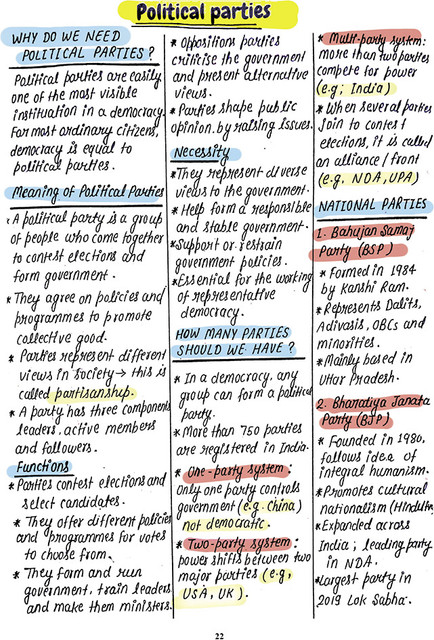 Political parties
WHY DO WE NEED
POLITICAL PARTIES ?
Political parties are easily
one of the most visible
institution in a democracy.
For most ordinary citizens,
democracy is equal to
political parties.
Meaning of Political Parties
• A political party is a group
of people who come together
to contest elections and
form government.
* They agree on policies and
programmes to promote
collective good.
* Parties represent different
views in society → this is
called partisanship.
* A party has three components
leaders, active members
and followers.
Functions
* Parties contest elections and
select candidates.
* They offer different policies
and programmes for votes
to choose from.
* They form and run
government, train leaders
and make them ministers.
* Oppositions parties
criticise the government
and present alternative
views.
* Parties shape public
opinion by raising issues.
Necessity
* They represent diverse
views to the government.
* Help form a responsible
and stable government.
* Support or restrain
government policies.
* Essential for the working
of representative
democracy.
HOW MANY PARTIES
SHOULD WE HAVE ?
* In a democracy, any
group can form a political
party.
* More than 750 parties
are registered in India.
* One-party system :
Only one party controls
government (e.g. China)
not democratic.
* Two-party system :
power shifts between two
major parties (e.g,
USA, UK).
* Multi-party system:
more than two parties
compete for power
(e.g; India)
* When several parties
join to contest
elections, it is called
an alliance / front
(e.g. NDA, UPA)
NATIONAL PARTIES
1. Bahujan Samaj
Party (BSP)
* Formed in 1984
by Kanshi Ram.
* Represents Dalits,
Adivasis, OBCs and
minorities.
* Mainly based in
Uttar Pradesh.
2. Bharatiya Janata
Party (BJP)
* Founded in 1980,
follows idea of
integral humanism.
* Promotes cultural
nationalism (Hindutva
* Expanded across
India ; leading party
in NDA.
* Largest party in
2019 Lok Sabha.
22